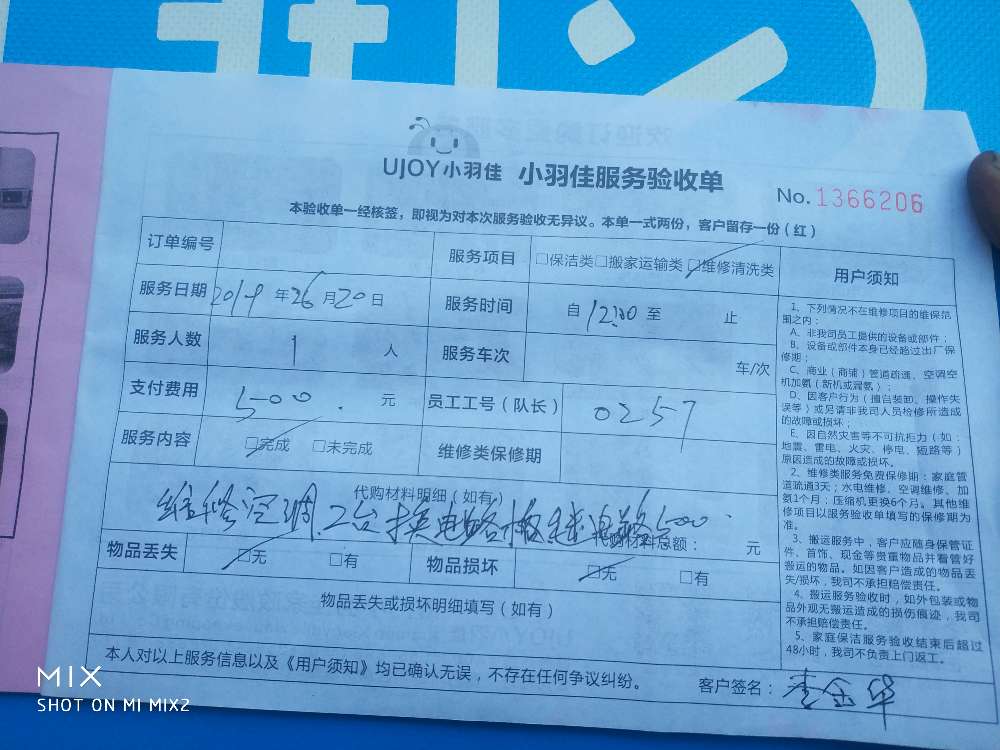 UJOY小羽佳 小羽佳服务验收单 No.1366206
本验收单一经核签，即视为对本次服务验收无异议。本单一式两份，客户留存一份（红）
订单编号 服务项目 □保洁类□搬家运输类□维修清洗类 用户须知
服务日期 2019年26月20日 服务时间 自12:30至 止
服务人数 1 人 服务车次 车/次
支付费用 500. 元 员工工号（队长） 0257
服务内容 □完成 □未完成 维修类保修期
代购材料明细（如有）
维修空调2台换电路板 500
材料总额： 元
物品丢失 □无 □有 物品损坏 □无 □有
物品丢失或损坏明细填写（如有）
本人对以上服务信息以及《用户须知》均已确认无误，不存在任何争议纠纷。 客户签名：李金华
1、下列情况不在维修项目的维保范
围之内：
A、非我司员工提供的设备或部件；
B、设备或部件本身已经超过出厂保
修期；
C、商业（商铺）管道疏通、空调空
机加氨（新机或漏氨）；
D、因客户行为（擅自装卸、操作失
误等）或另请非我司人员检修所造成
的故障或损坏；
E、因自然灾害等不可抗拒力（如：
地震、雷电、火灾、停电、短路等）
原因造成的故障或损坏。
2、维修类服务免费保修期：家庭管
道疏通3天；水电维修、空调维修、加
氨1个月；压缩机更换6个月。其他维
修项目以服务验收单填写的保修期为
准。
3、搬运服务中，客户应随身保管证
件、首饰、现金等贵重物品并看管好
搬运的物品。如因客户造成的物品丢
失/损坏，我司不承担赔偿责任。
4、搬运服务验收时，如外包装或物
品外观无搬运造成的损伤痕迹，我司
不承担赔偿责任。
5、家庭保洁服务验收结束后超过
48小时，我司不负责上门返工。
MIX
SHOT ON MI MIX2